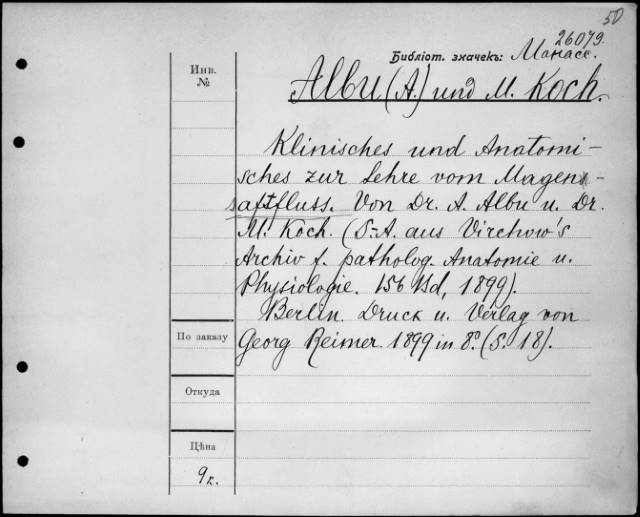 50
26079.
Библіот. значекъ: Манасс.
Инв.
№
Albu (A.) und M. Koch.
Klinisches und Anatomi-
sches zur Lehre vom Magen-
saftfluss. Von Dr. A. Albu u. Dr.
M. Koch. (S.-A. aus Virchow's
Archiv f. patholog. Anatomie u.
Physiologie. 156 Bd, 1899).
Berlin. Druck u. Verlag von
Georg Reimer. 1899 in 8º. (S. 18).
По заказу
Откуда
Цѣна
9к.